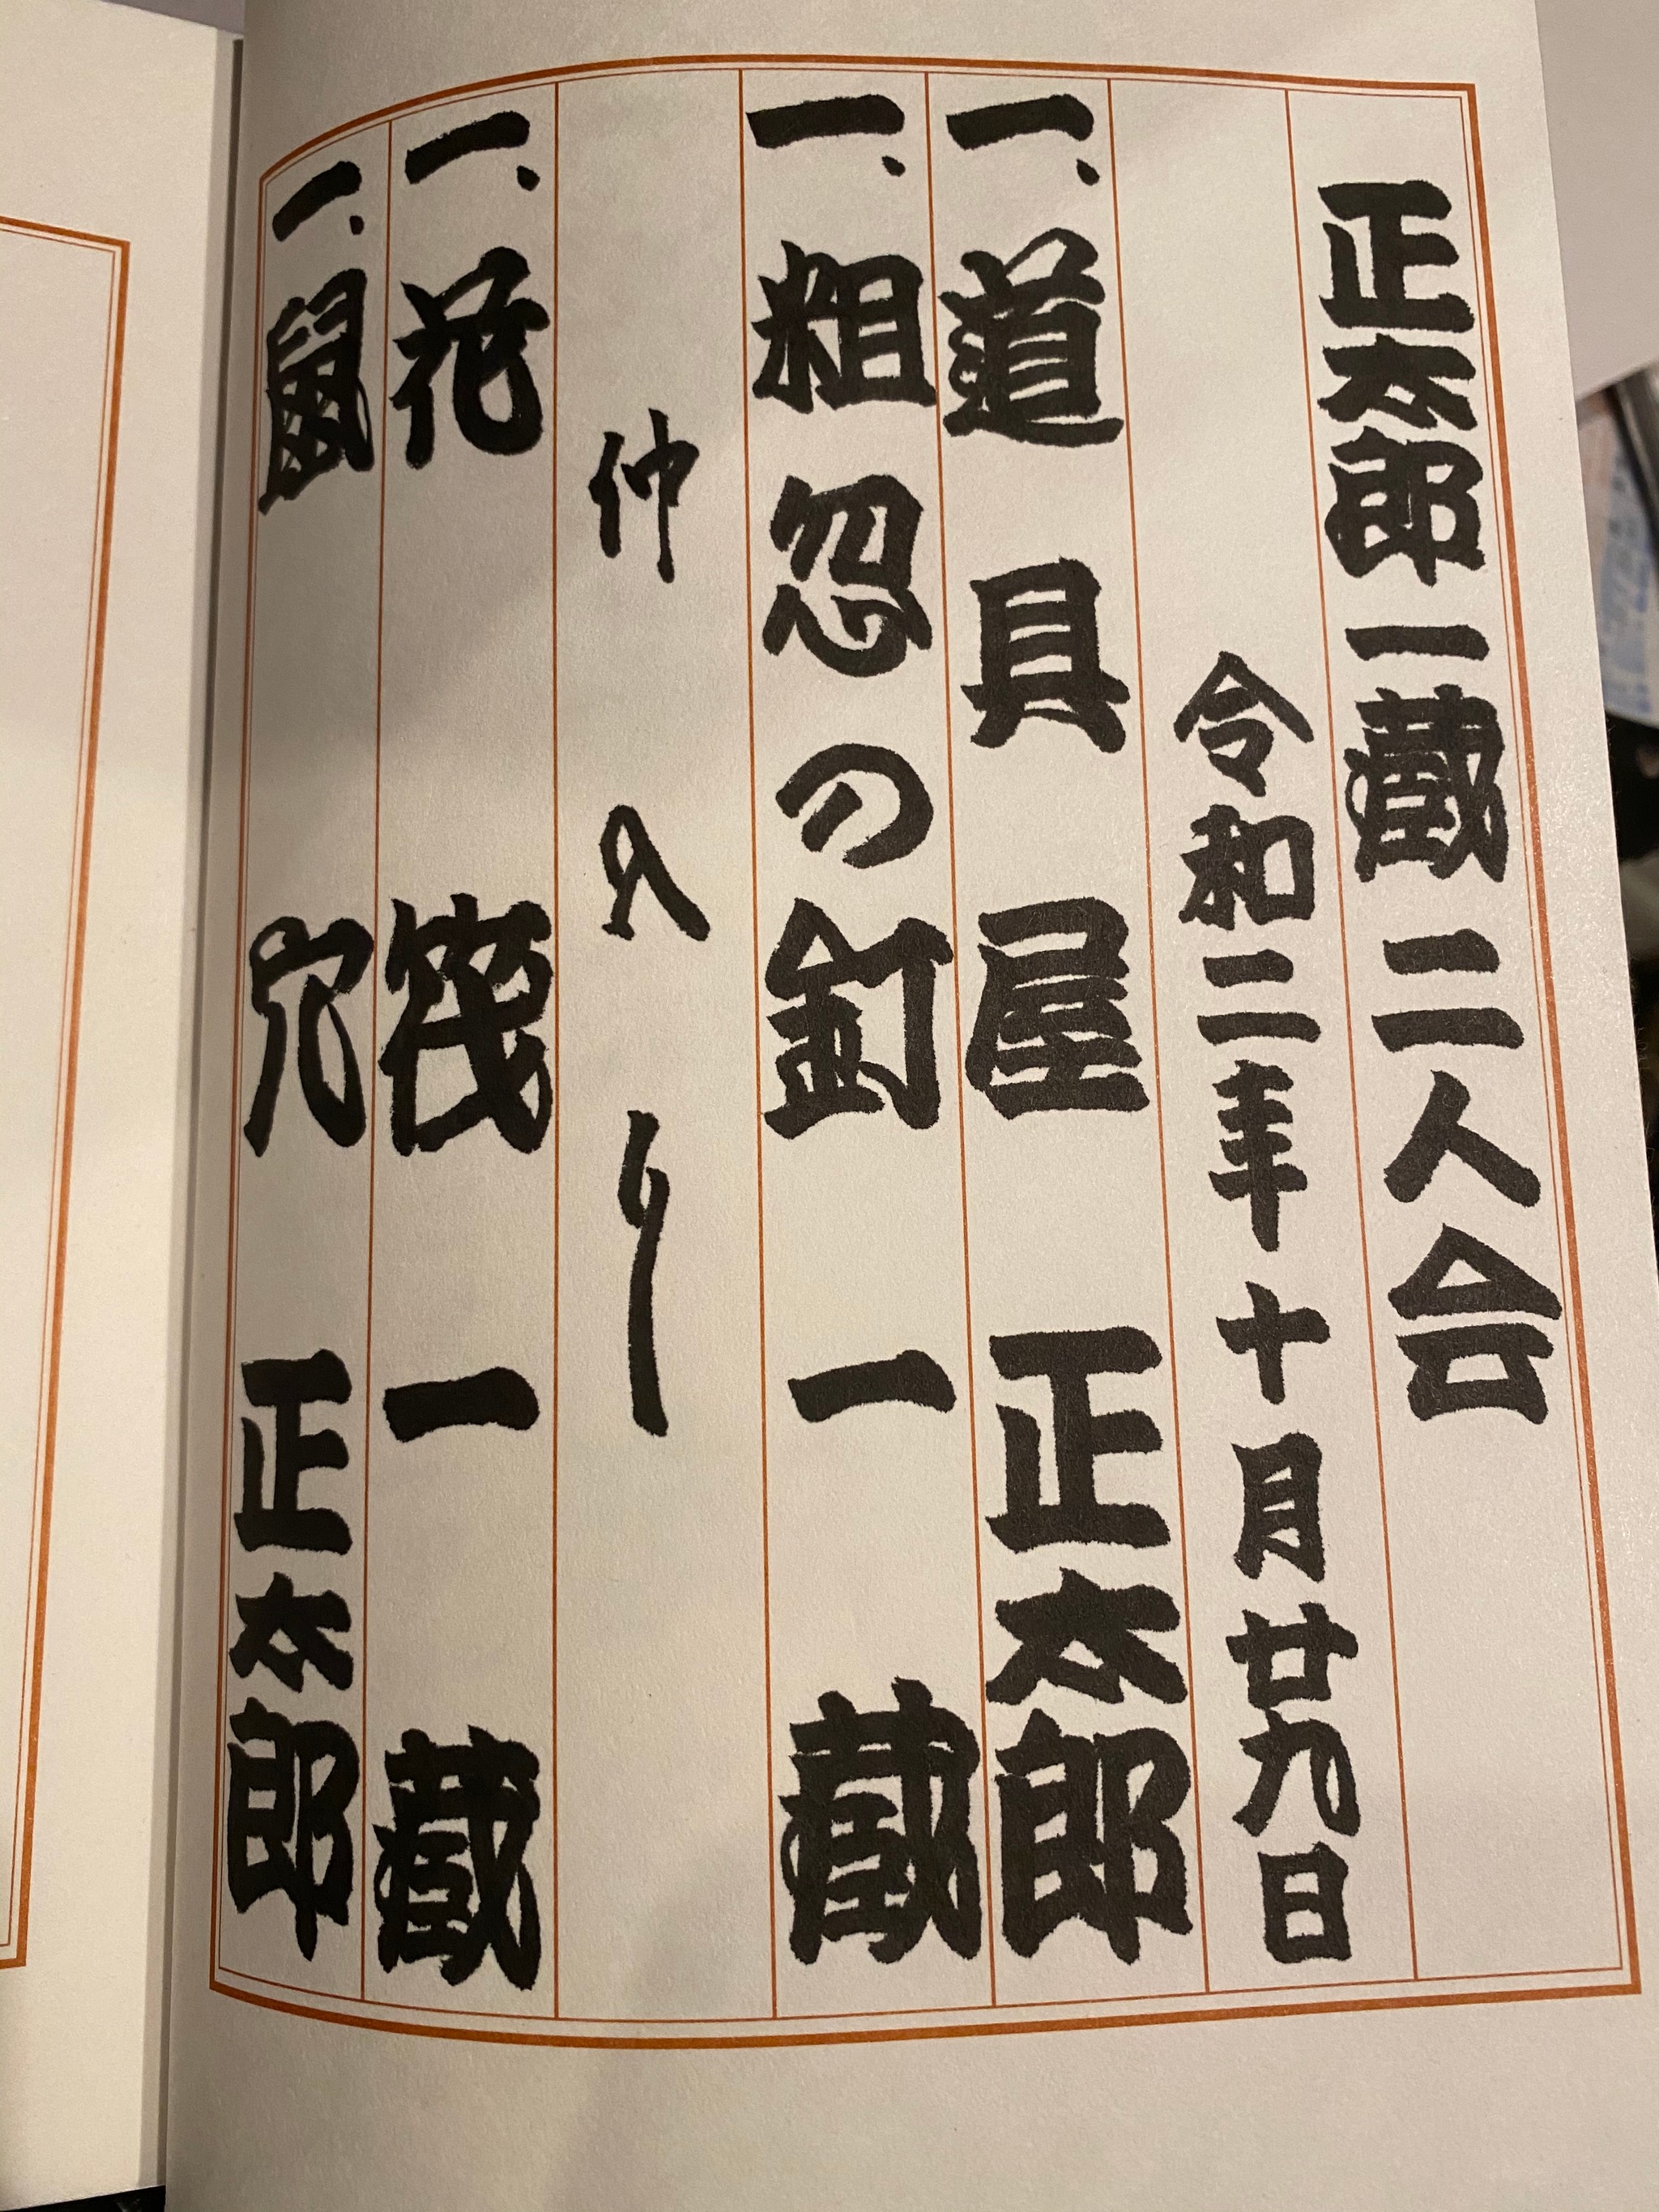 正太郎一蔵二人会
令和二年十月廿九日
一、道具屋 正太郎
一、粗忽の釘 一蔵
仲入り
一、花筏 一蔵
一、鼠穴 正太郎